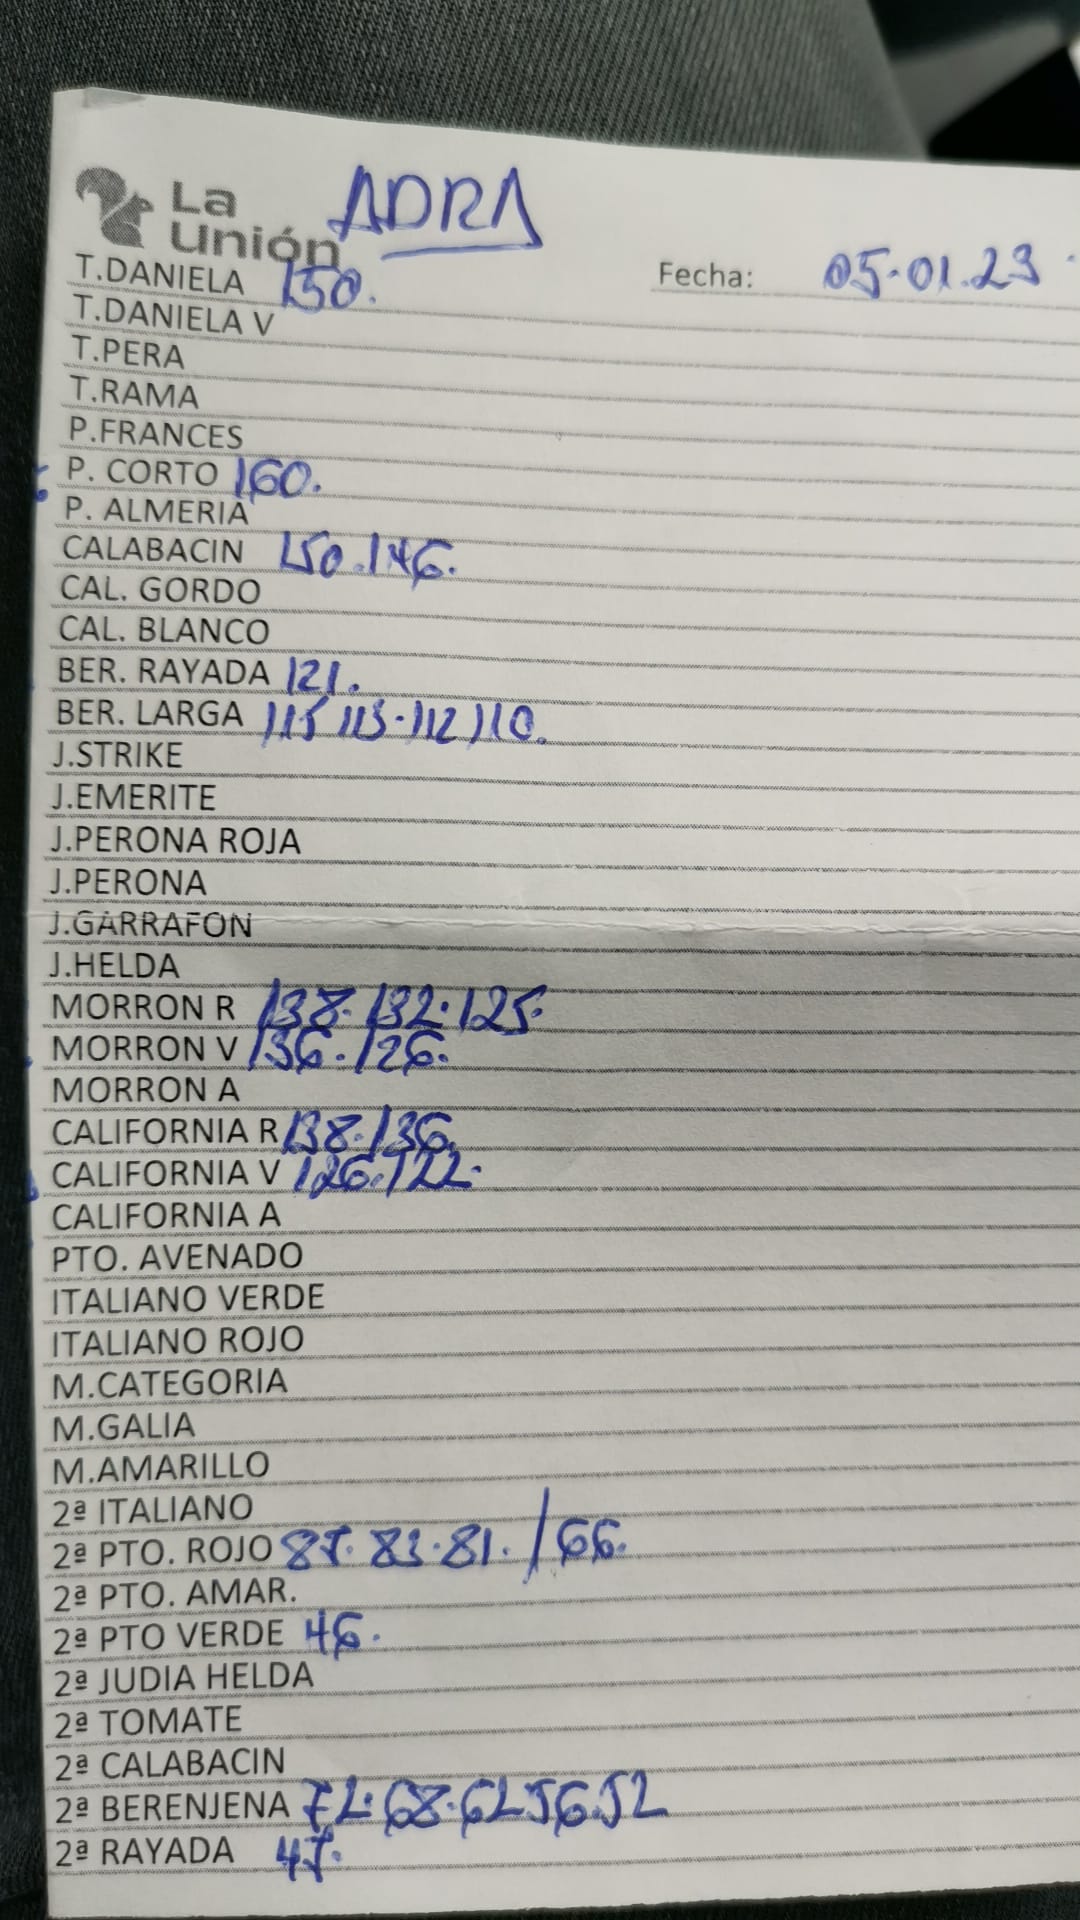 La
Unión ADRA
T.DANIELA 150. Fecha: 05.01.23
T.DANIELA V
T.PERA
T.RAMA
P.FRANCES
P. CORTO 160.
P. ALMERIA
CALABACIN 150.146.
CAL. GORDO
CAL. BLANCO
BER. RAYADA 121.
BER. LARGA 115 113.112 110.
J.STRIKE
J.EMERITE
J.PERONA ROJA
J.PERONA
J.GARRAFON
J.HELDA
MORRON R 138.132.125.
MORRON V 136.126.
MORRON A
CALIFORNIA R 138.136.
CALIFORNIA V 126.122.
CALIFORNIA A
PTO. AVENADO
ITALIANO VERDE
ITALIANO ROJO
M.CATEGORIA
M.GALIA
M.AMARILLO
2ª ITALIANO
2ª PTO. ROJO 87.83.81./66.
2ª PTO. AMAR.
2ª PTO VERDE 46.
2ª JUDIA HELDA
2ª TOMATE
2ª CALABACIN
2ª BERENJENA 72.68.62 56.52
2ª RAYADA 47.